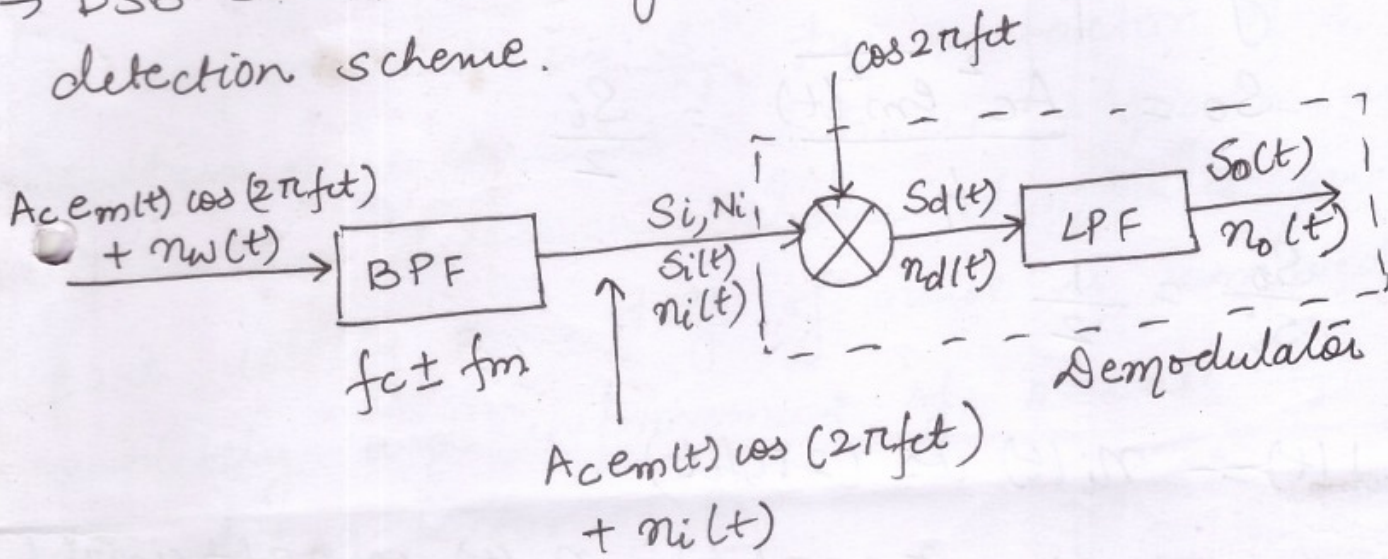 → DSB
detection scheme.
cos2πfct
Ac em(t) cos(2πfct)
+ nw(t)
BPF
fc ± fm
Si, Ni
Si(t)
ni(t)
Sd(t)
nd(t)
LPF
So(t)
no(t)
Demodulator
Ac em(t) cos (2πfct)
+ ni(t)